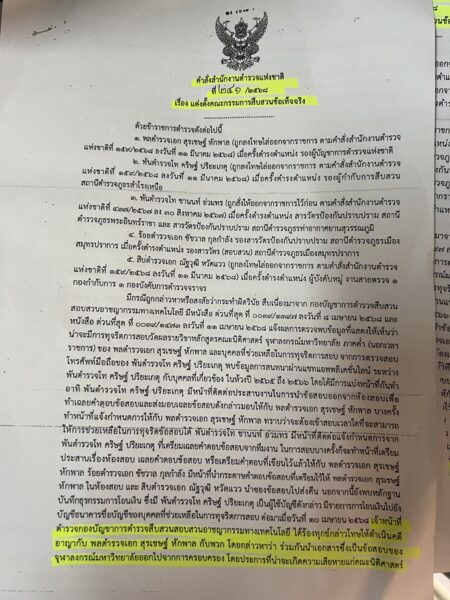 คำสั่งสำนักงานตำรวจแห่งชาติ
ที่ ๒๔๑ /๒๕๖๘
เรื่อง แต่งตั้งคณะกรรมการสืบสวนข้อเท็จจริง
ด้วยข้าราชการตำรวจดังต่อไปนี้
๑. พลตำรวจเอก สุรเชษฐ์ หักพาล (ถูกลงโทษไล่ออกจากราชการ ตามคำสั่งสำนักงานตำรวจ
แห่งชาติที่ ๑๕๙/๒๕๖๘ ลงวันที่ ๑๑ มีนาคม ๒๕๖๘) เมื่อครั้งดำรงตำแหน่ง รองผู้บัญชาการตำรวจแห่งชาติ
๒. พันตำรวจโท คริษฐ์ ปริยะเกตุ (ถูกลงโทษไล่ออกจากราชการ ตามคำสั่งสำนักงานตำรวจ
แห่งชาติที่ ๑๕๙/๒๕๖๘ ลงวันที่ ๑๑ มีนาคม ๒๕๖๘) เมื่อครั้งดำรงตำแหน่ง รองผู้กำกับการสืบสวน
สถานีตำรวจภูธรสำโรงเหนือ
๓. พันตำรวจโท ชานนท์ อ่วมทร (ถูกสั่งให้ออกจากราชการไว้ก่อน ตามคำสั่งสำนักงานตำรวจ
แห่งชาติที่ ๔๓๗/๒๕๖๗ ลง ๓๐ สิงหาคม ๒๕๖๗) เมื่อครั้งดำรงตำแหน่ง สารวัตรป้องกันปราบปราม สถานี
ตำรวจภูธรพระอินทร์ราชา และ สารวัตรป้องกันปราบปราม สถานีตำรวจภูธรท่าอากาศยานสุวรรณภูมิ
๔. ร้อยตำรวจเอก ชัชวาล กุลกำลัง รองสารวัตรป้องกันปราบปราม สถานีตำรวจภูธรเมือง
สมุทรปราการ เมื่อครั้งดำรงตำแหน่ง รองสารวัตร (สอบสวน) สถานีตำรวจภูธรเมืองสมุทรปราการ
๕. สิบตำรวจเอก ณัฐวุฒิ หวัดแวว (ถูกลงโทษไล่ออกจากราชการ ตามคำสั่งสำนักงานตำรวจ
แห่งชาติที่ ๑๕๙/๒๕๖๘ ลงวันที่ ๑๑ มีนาคม ๒๕๖๘) เมื่อครั้งดำรงตำแหน่ง ผู้บังคับหมู่ งานสายตรวจ ๑
กองกำกับการ ๑ กองบังคับการตำรวจจราจร
มีกรณีถูกกล่าวหาหรือสงสัยว่ากระทำผิดวินัย สืบเนื่องมาจาก กองบัญชาการตำรวจสืบสวน
สอบสวนอาชญากรรมทางเทคโนโลยี มีหนังสือ ด่วนที่สุด ที่ ลงวันที่ ๘ เมษายน ๒๕๖๘ และ
หนังสือ ด่วนที่สุด ที่ ลงวันที่ ๑๑ เมษายน ๒๕๖๘ แจ้งผลการตรวจพบข้อมูลที่แสดงให้เห็นว่า
น่าจะมีการทุจริตการสอบวัดผลรายวิชาหลักสูตรคณะนิติศาสตร์ จุฬาลงกรณ์มหาวิทยาลัย ภาคค่ำ (นอกเวลา
ราชการ) ของ พลตำรวจเอก สุรเชษฐ์ หักพาล และบุคคลที่ช่วยเหลือในการทุจริตการสอบ จากการตรวจสอบ
โทรศัพท์มือถือของ พันตำรวจโท คริษฐ์ ปริยะเกตุ พบข้อมูลการสนทนาผ่านแชทแอพพลิเคชันไลน์ ระหว่าง
พันตำรวจโท คริษฐ์ ปริยะเกตุ กับบุคคลที่เกี่ยวข้อง ในห้วงปี ๒๕๖๕ ถึง ๒๕๖๖ โดยได้มีการแบ่งหน้าที่กันทำ
อาทิ พันตำรวจโท คริษฐ์ ปริยะเกตุ มีหน้าที่ติดต่อประสานงานในการนำข้อสอบออกจากห้องสอบเพื่อ
ทำเฉลยคำตอบข้อสอบและส่งมอบเฉลยข้อสอบดังกล่าวมอบให้กับ พลตำรวจเอก สุรเชษฐ์ หักพาล บางครั้ง
ทำหน้าที่แจ้งกำหนดการให้กับ พลตำรวจเอก สุรเชษฐ์ หักพาล ทราบว่าจะต้องเข้าสอบเวลาใดที่จะสามารถ
ให้การช่วยเหลือในการทุจริตข้อสอบได้ พันตำรวจโท ชานนท์ อ่วมทร มีหน้าที่ติดต่อแจ้งกำหนดการจาก
พันตำรวจโท คริษฐ์ ปริยะเกตุ ที่เตรียมเฉลยคำตอบข้อสอบจากทีมงาน ในการสอบบางครั้งก็จะทำหน้าที่เตรียม
ประสานเรื่องห้องสอบ เฉลยคำตอบข้อสอบ หรือเตรียมคำตอบที่เขียนไว้แล้วให้กับ พลตำรวจเอก สุรเชษฐ์
หักพาล ร้อยตำรวจเอก ชัชวาล กุลกำลัง มีหน้าที่นำกระดาษคำตอบข้อสอบที่เตรียมไว้ให้ พลตำรวจเอก สุรเชษฐ์
หักพาล ในห้องสอบ และ สิบตำรวจเอก ณัฐวุฒิ หวัดแวว นำซองข้อสอบไปส่งคืน นอกจากนี้ยังพบหลักฐาน
บันทึกธุรกรรมการโอนเงิน ซึ่งมี พันตำรวจโท คริษฐ์ ปริยะเกตุ เป็นผู้ใช้บัญชีดังกล่าว มีรายการการโอนเงินไปยัง
บัญชีธนาคารชื่อบัญชีของบุคคลที่ช่วยเหลือในการทุจริตการสอบ ต่อมาเมื่อวันที่ ๑๐ เมษายน ๒๕๖๘ เจ้าหน้าที่
ตำรวจกองบัญชาการตำรวจสืบสวนสอบสวนอาชญากรรมทางเทคโนโลยี ได้ร้องทุกข์กล่าวโทษให้ดำเนินคดี
อาญากับ พลตำรวจเอก สุรเชษฐ์ หักพาล กับพวก โดยกล่าวหาว่า ร่วมกันนำเอกสารซึ่งเป็นข้อสอบของ
จุฬาลงกรณ์มหาวิทยาลัยออกไปจากการครอบครอง โดยประการที่น่าจะเกิดความเสียหายแก่คณะนิติศาสตร์